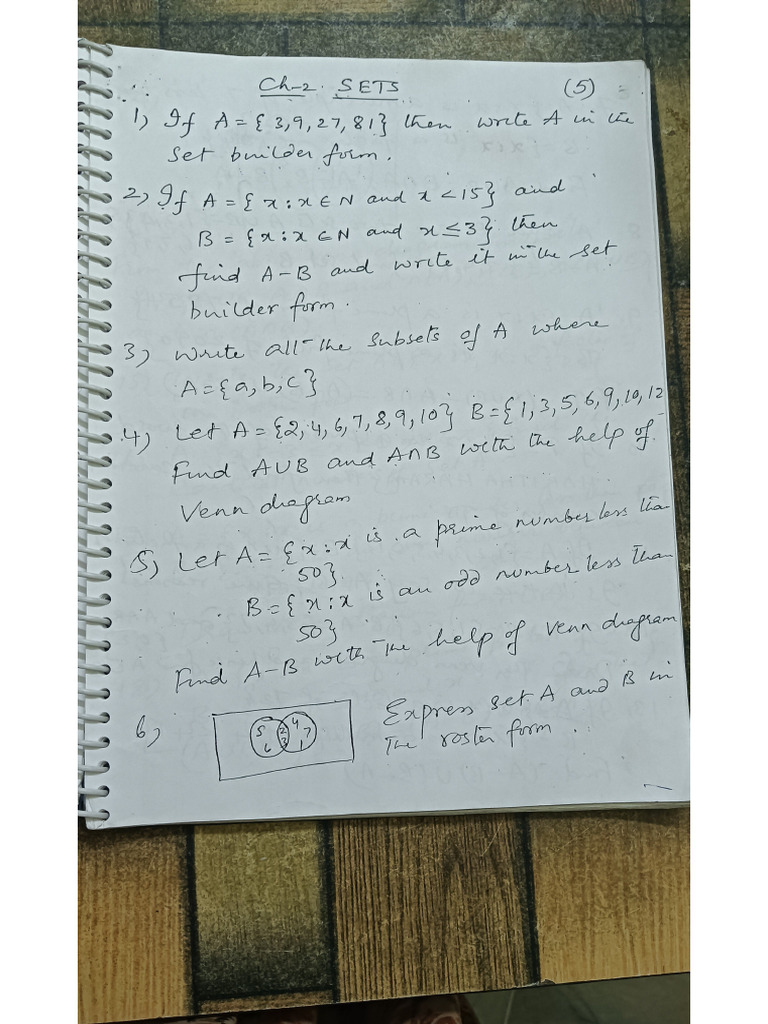 Ch-2. SETS (5)
1) If A = { 3,9,27,81} then write A in the
set builder form.
2) If A = { x : x ∈ N and x < 15} and
B = {x : x ∈ N and x ≤ 3} then
find A-B and write it in the set
builder form.
3) Write all the subsets of A where
A = {a, b, c}
4) Let A = {2, 4, 6, 7, 8, 9, 10} B = {1, 3, 5, 6, 9, 10, 12
Find A∪B and A∩B with the help of
Venn diagram
5) Let A = {x : x is a prime number less tha
50}
B = { x : x is an odd number less than
50}
Find A-B with the help of Venn diagram
6) 5 6 2 3 4 7 1 Express set A and B in
the roster form.